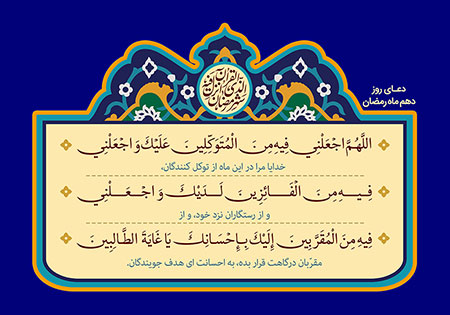 دعـای روز
دهم ماه رمضان
شهر رمضان الذی انزل فیه القرآن
اللَّهُمَّ اجْعَلْنِي فِيهِ مِنَ الْمُتَوَكِّلِينَ عَلَيْكَ وَ اجْعَلْنِي
خدایا مرا در این ماه از توکل کنندگان،
فِيهِ مِنَ الْفَائِزِينَ لَدَيْكَ وَ اجْعَلْنِي
و از رستگاران نزد خود، و از
فِيهِ مِنَ الْمُقَرَّبِينَ إِلَيْكَ بِإِحْسَانِكَ يَا غَايَةَ الطَّالِبِينَ
مقرّبان درگاهت قرار بده، به احسانت ای هدف جویندگان.